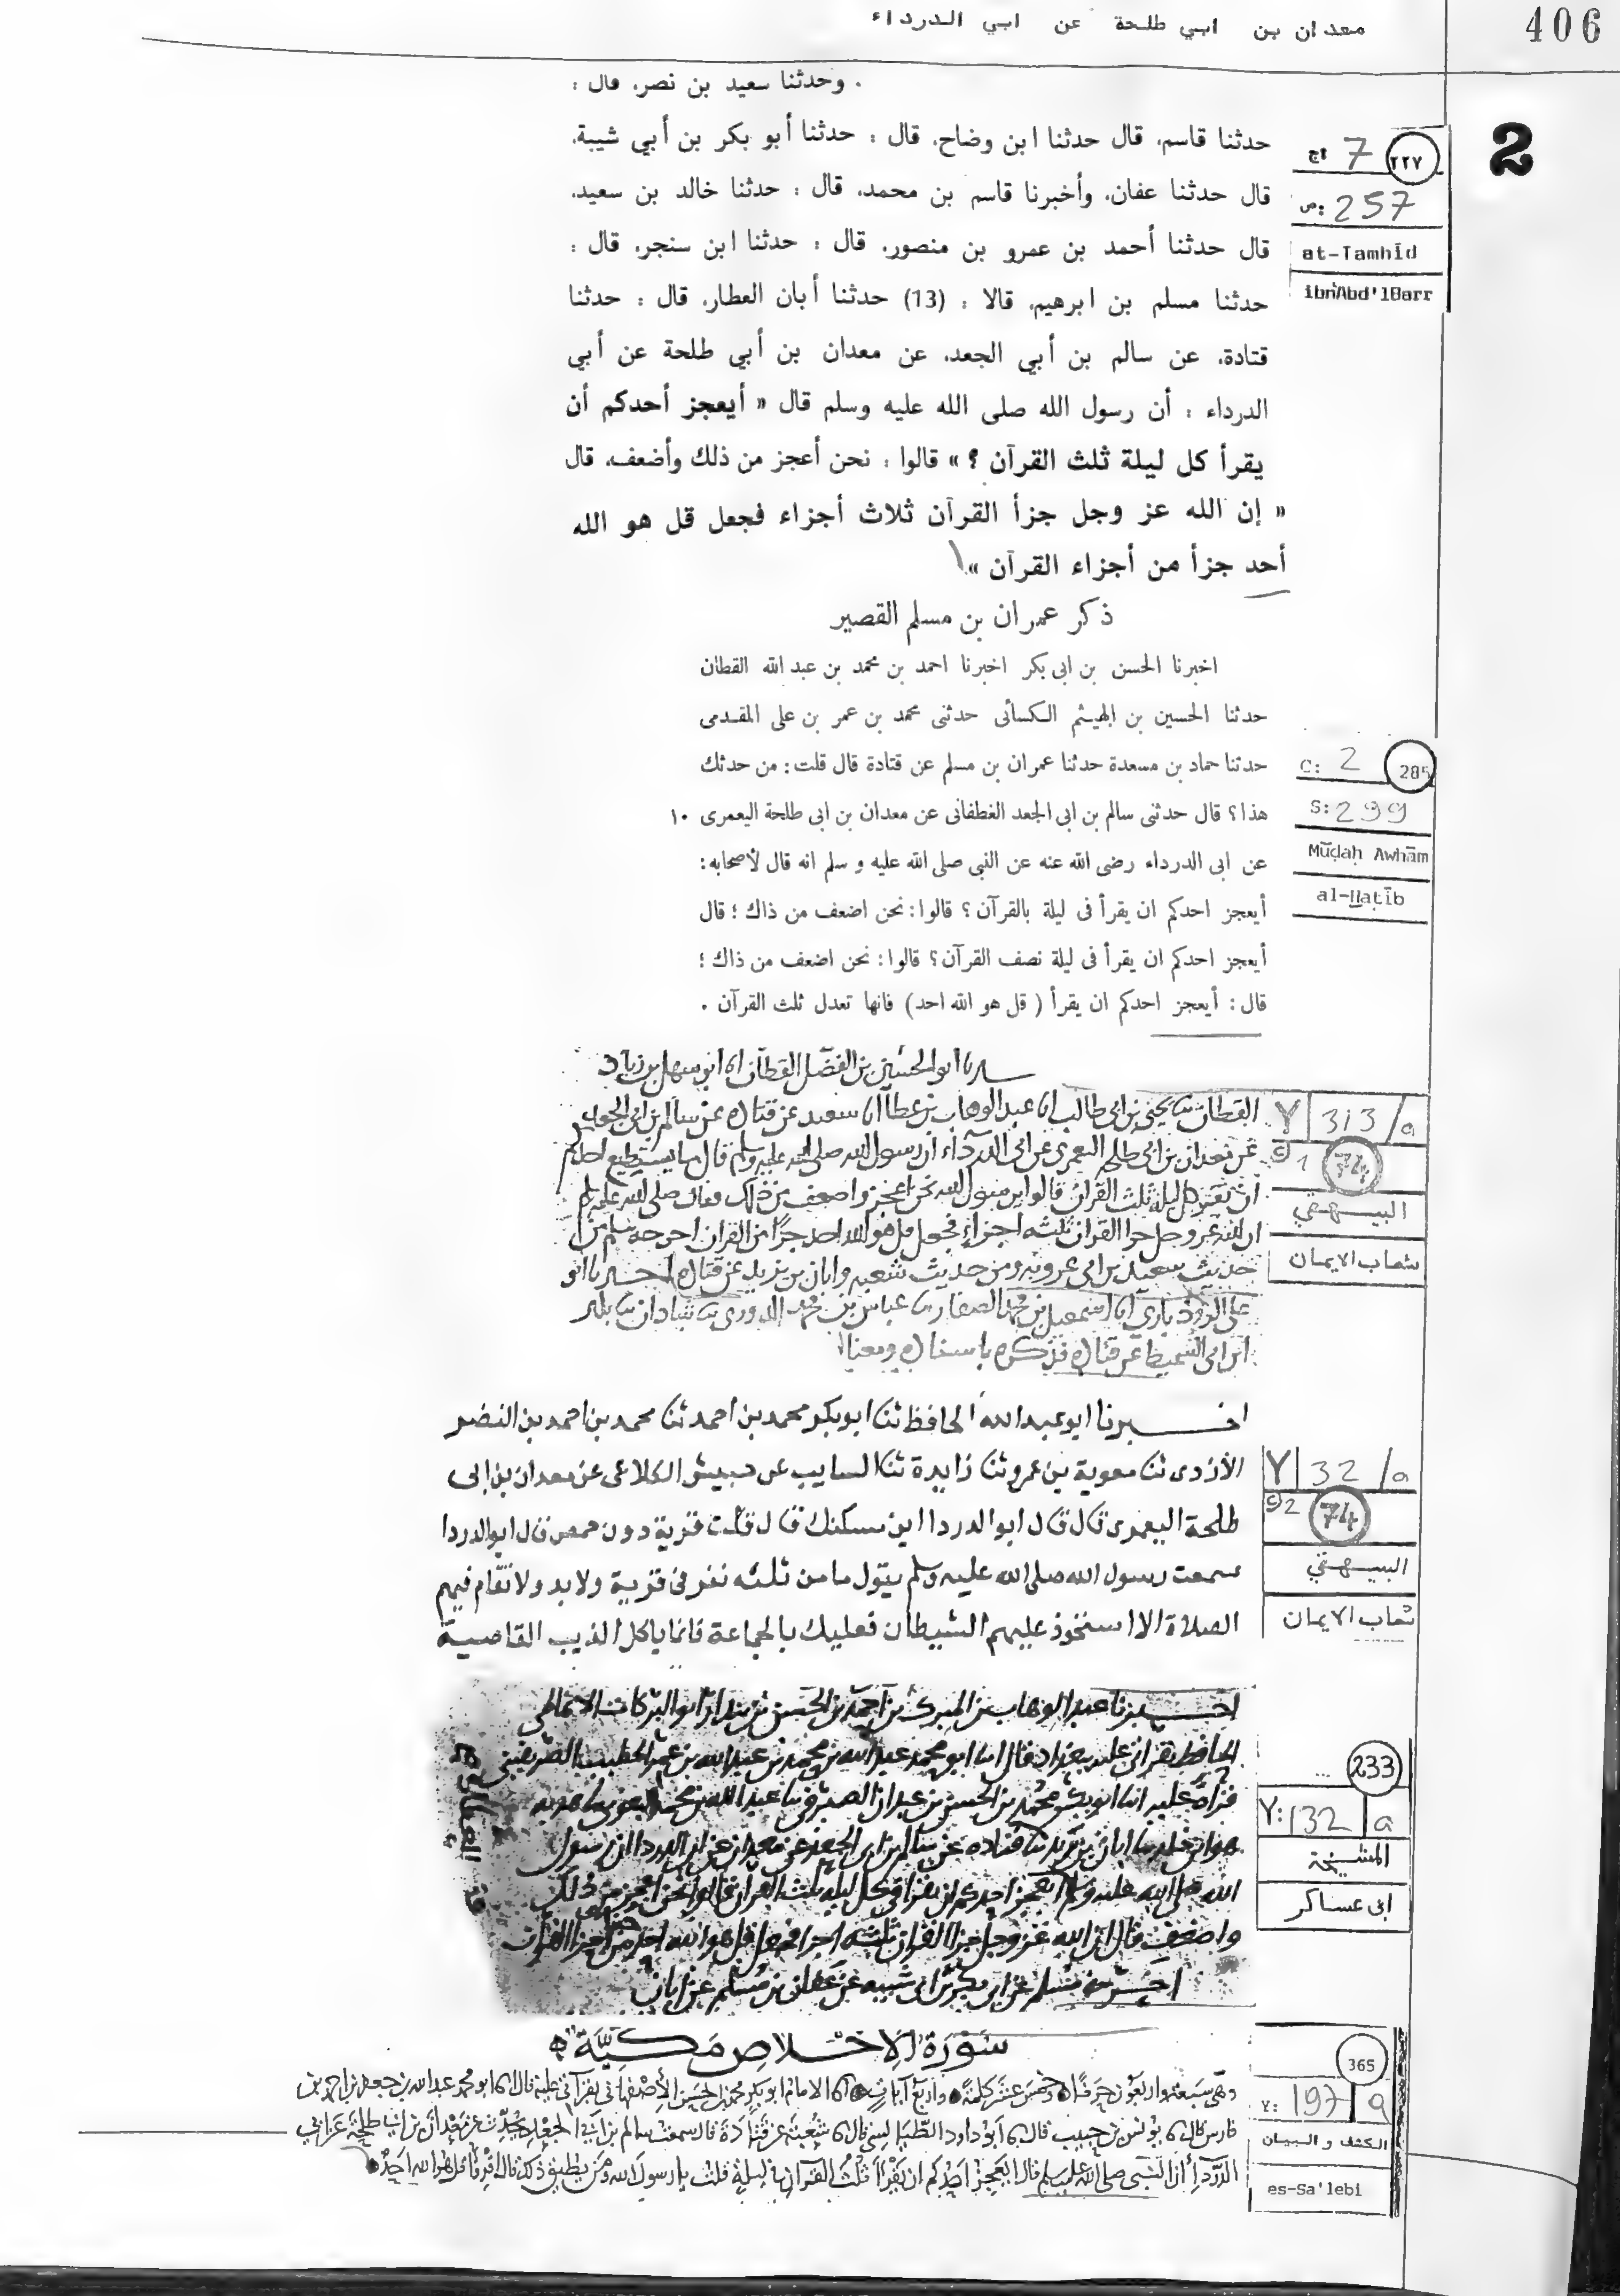 406
معدان بن ابي طلحة عن ابي الدرداء
2
. وحدثنا سعيد بن نصر، قال :
حدثنا قاسم، قال حدثنا ابن وضاح، قال : حدثنا أبو بكر بن أبي شيبة،
قال حدثنا عفان، وأخبرنا قاسم بن محمد، قال : حدثنا خالد بن سعيد،
قال حدثنا أحمد بن عمرو بن منصور، قال : حدثنا ابن سنجر، قال :
حدثنا مسلم بن ابرهيم، قالا : (13) حدثنا أبان العطار، قال : حدثنا
قتادة، عن سالم بن أبي الجعد، عن معدان بن أبي طلحة عن أبي
الدرداء : أن رسول الله صلى الله عليه وسلم قال « أيعجز أحدكم أن
يقرأ كل ليلة ثلث القرآن ؟ » قالوا : نحن أعجز من ذلك وأضعف، قال
« إن الله عز وجل جزأ القرآن ثلاث أجزاء فجعل قل هو الله
أحد جزأ من أجزاء القرآن »
7 ٢٢٧
ص: 257
at-Tamhīd
ibn Abd'lBarr
ذكر عمران بن مسلم القصير
اخبرنا الحسن بن ابى بكر اخبرنا احمد بن محمد بن عبد الله القطان
حدثنا الحسين بن الهيثم الكسائى حدثنى محمد بن عمر بن على المقدمى
حدثنا حماد بن مسعدة حدثنا عمران بن مسلم عن قتادة قال قلت: من حدثك
هذا؟ قال حدثنى سالم بن ابى الجعد الغطفانى عن معدان بن ابى طلحة اليعمرى ١٠
عن ابى الدرداء رضى الله عنه عن النبى صلى الله عليه و سلم انه قال لأصحابه:
أيعجز احدكم ان يقرأ فى ليلة بالقرآن ؟ قالوا: نحن اضعف من ذاك ؛ قال
أيعجز احدكم ان يقرأ فى ليلة نصف القرآن؟ قالوا: نحن اضعف من ذاك ؛
قال: أيعجز احدكم ان يقرأ ( قل هو الله احد) فانها تعدل ثلث القرآن .
C: 2 285
S: 299
Mūḍaḥ Awhām
al-Ḫaṭīb
ابو الحسين بن الفضل القطان انا ابو سهل بن زياد
القطان يحيى بن ابى طالب انا عبد الوهاب بن عطا انا سعيد عن قتاده عن سالم بن ابى الجعد
عن معدان بن ابى طلحه اليعمرى عن ابى الدرداء ان رسول الله صلى الله عليه وسلم قال
ثلث القران قالوا نحن اعجز واضعف من ذلك فقال صلى الله عليه وسلم
ان الله عز وجل جزا القران ثلثه اجزاء فجعل قل هو الله احد جزءا من القران اخرجه مسلم من
حديث سعيد بن ابى عروبه ومن حديث شعبه وابان بن يزيد عن قتاده اخبرنا ابو
على الروذبارى انا اسمعيل بن محمد الصفار عباس بن محمد الدورى شاذان
ابن ابى السميط عن قتاده فذكره باسناده ومعناه
Y 313/a
1 74
البيهقي
شعاب الايمان
اخبرنا ابو عبد الله الحافظ ثنا ابو بكر محمد بن احمد ثنا محمد بن احمد بن النضر
الأزدى ثنا معوية بن عمرو ثنا زايدة ثنا السايب عن حبيش الكلاعى عن معدان بن ابى
طلحة اليعمرى قال قال ابو الدردا اين مسكنك قال قلت قرية دون حمص قال ابو الدردا
سمعت رسول الله صلى الله عليه وسلم يقول ما من ثلثه نفر فى قرية ولا بدو لا تقام فيهم
الصلاة الا استحوذ عليهم الشيطان فعليك بالجماعة فانما ياكل الذيب القاصية
Y 32/a
2 74
البيهقي
شعاب الايمان
اخبرنا عبد الوهاب بن المبرك بن احمد بن الحسن بن بندار ابو البركات الانماطى
الحافظ بقراتى عليه ببغداد قال انا ابو محمد عبد الله بن محمد بن عبد الله بن عمر الخطيب الصريفينى
قراة عليه انا ابو محمد بن الحسن بن عبدان الصيرفى عبد الله بن محمد البغوى هدبه
ابان بن يزيد قتاده عن سالم بن ابى الجعد عن معدان عن ابى الدردا ان رسول
الله صلى الله عليه وسلم قال ايعجز احدكم ان يقرا فى كل ليله ثلث القران قالوا نحن اعجز من ذلك
واضعف قال ان الله عز وجل جزا القران ثلثه اجزا فجعل قل هو الله احد من اجزا القران
اخرجه مسلم عن ابى بكر بن ابى شيبه عن عفان بن مسلم عن ابان
233
Y: 132 a
المشيخة
ابى عساكر
سورة الاخلاص مكية
وهى سبعة واربعون حرفا وخمس عشرة كلمة واربع آيات الامام ابو بكر محمد بن الحسن الأصفهانى بقراتى عليه قال ابو محمد عبد الله بن جعفر بن احمد بن
فارس قال يونس بن حبيب قال ابو داود الطيالسى قال شعبة عن قتادة قال سمعت سالم بن ابى الجعد يحدث عن معدان بن ابى طلحة عن ابى
الدرداء ان النبى صلى الله عليه وسلم قال ايعجز احدكم ان يقرأ ثلث القرآن فى ليلة قلت يا رسول الله ومن يطيق ذلك قال اقرأ قل هو الله احد
365
Y: 197 a
الكشف و البيان
es-Sa'lebi